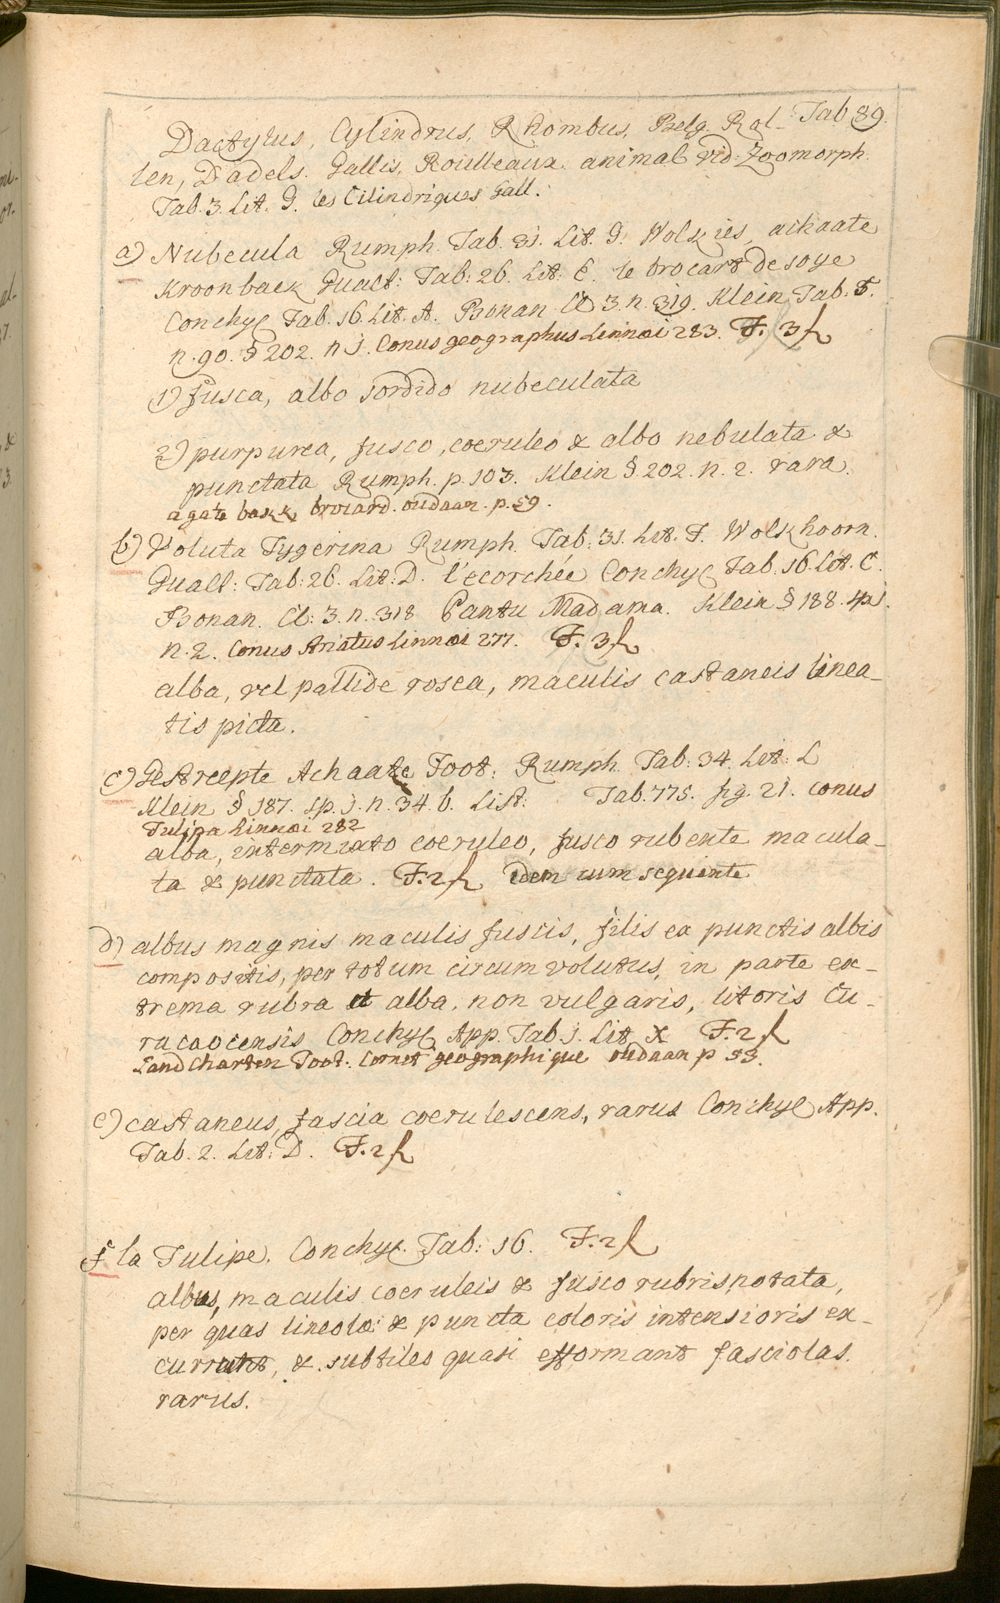 Tab 89.
Dactylus, Cylindrus, Rhombus, Belg. Rol-
len, Dadels. Gallis, Roulleaux. animal vid. Zoomorph.
Tab. 3. Lit. G. les Cilindriques Gall.
a) Nubecula Rumph. Tab. 31. Lit. G. Wolkies, achaate
Kroonbaek Gualt: Tab: 26. Lit. E. le brocart de soye
Conchyl Tab. 16. Lit. A. Bonan. Cl 3. n. 319. Klein Tab. 5.
n. 90. § 202. n 1. Conus geographus Linnæi 283. F. 3 f
1) fusca, albo sordido nubeculata
2) purpurea, fusco, coeruleo & albo nebulata &
punctata Rumph. p. 103. Klein § 202. n. 2. rara.
agate bakk brocard. oudaan. p. 59.
b) Voluta Tygerina Rumph. Tab. 31. Lit. F. Wolkhoorn.
Gualt: Tab: 26. Lit: D. l'ecorchée Conchyl Tab. 16. Lit. C.
Bonan. Cl: 3. n. 318 Pantu Madama. Klein § 188.
n. 2. Conus striatus Linnæi 277. F. 3 f
alba, vel pallide rosea, maculis castaneis linea-
tis picta.
c) Gestreepte Achaate Toot. Rumph. Tab. 34. Lit: L
Klein § 187. sp. 1. n. 34. b. List: Tab. 775. fig. 21. Conus
Tulipa Linnæi 282
alba, intermixto coeruleo, fusco rubente macula-
ta & punctata. F. 2 f idem cum sequente
d) albus magnis maculis fuscis, filis ex punctis albis
compositis, per totum circumvolutus, in parte ex-
trema rubra et alba, non vulgaris, litoris Cu-
racaocensis Conchyl App. Tab. 1. Lit X F. 2 f
Land Charten Toot. Cornet geographique oudaan p 53.
e) castaneus, fascia coerulescens, rarus Conchyl App.
Tab. 2. Lit: D. F. 2 f
f la Tulipe. Conchyl. Tab: 16. F. 2 f
albus, maculis coeruleis & fusco rubris notata,
per quas lineolæ & puncta coloris intensioris ex-
currunt, & subtiles quasi efformant fasciolas.
rarus.